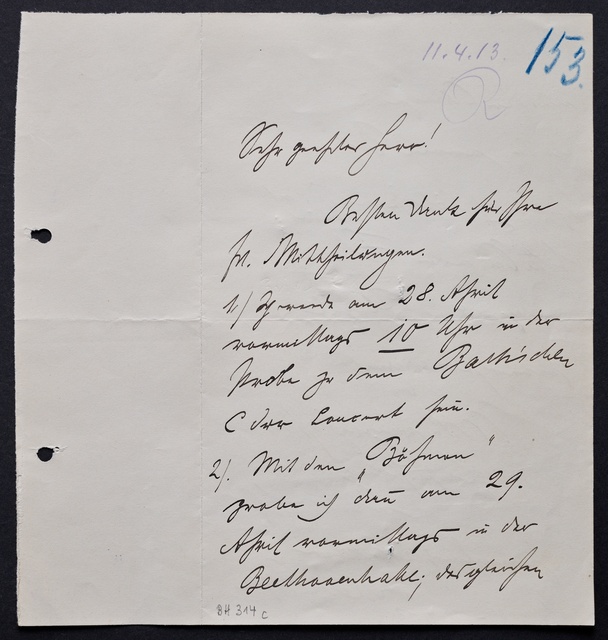 11.4.13.
153.
R
Sehr geehrter Herr!
Besten Dank für Ihre
fr. Mittheilungen.
1.) Ich werde am 28. April
vormittags 10 Uhr in der
Probe zu dem Bach'schen
C dur Concert sein.
2). Mit den „Böhmen"
probe ich dann am 29.
April vormittags in der
Beethovenhalle; desgleichen
BH 314 c